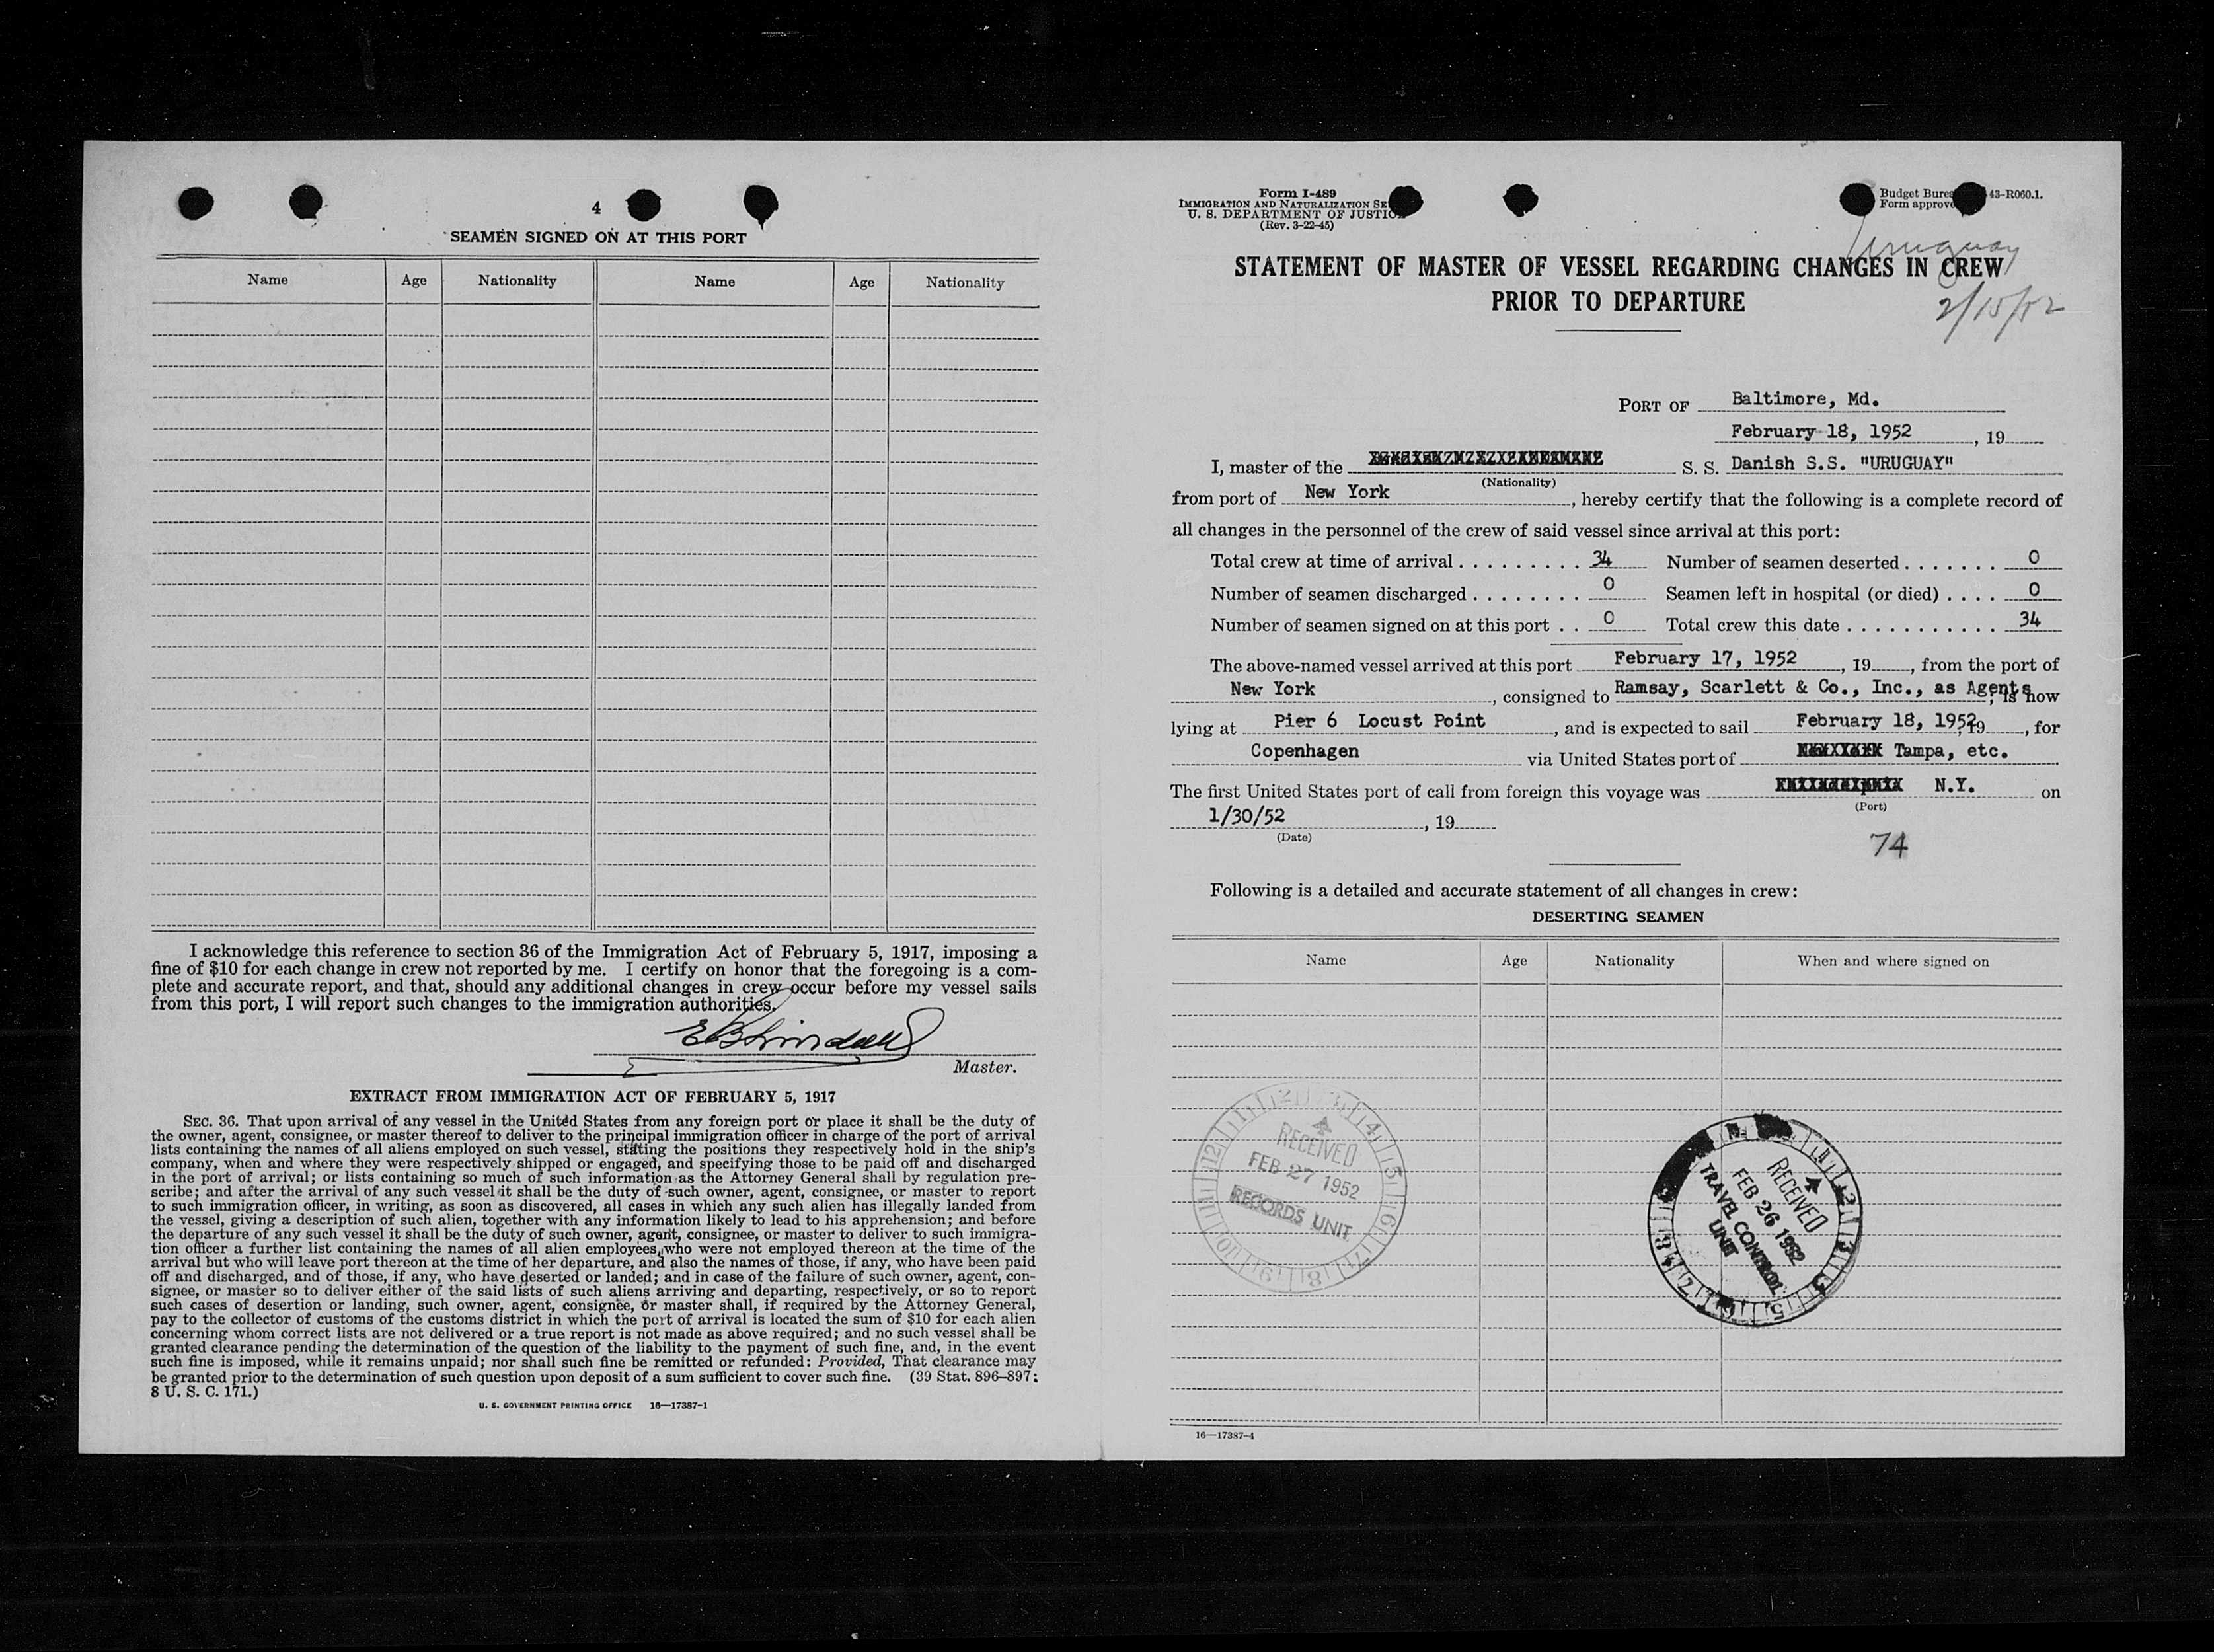 4
SEAMEN SIGNED ON AT THIS PORT
Name Age Nationality Name Age Nationality
I acknowledge this reference to section 36 of the Immigration Act of February 5, 1917, imposing a
fine of $10 for each change in crew not reported by me. I certify on honor that the foregoing is a com-
plete and accurate report, and that, should any additional changes in crew occur before my vessel sails
from this port, I will report such changes to the immigration authorities.
Master.
EXTRACT FROM IMMIGRATION ACT OF FEBRUARY 5, 1917
SEC. 36. That upon arrival of any vessel in the United States from any foreign port or place it shall be the duty of
the owner, agent, consignee, or master thereof to deliver to the principal immigration officer in charge of the port of arrival
lists containing the names of all aliens employed on such vessel, stating the positions they respectively hold in the ship's
company, when and where they were respectively shipped or engaged, and specifying those to be paid off and discharged
in the port of arrival; or lists containing so much of such information as the Attorney General shall by regulation pre-
scribe; and after the arrival of any such vessel it shall be the duty of such owner, agent, consignee, or master to report
to such immigration officer, in writing, as soon as discovered, all cases in which any such alien has illegally landed from
the vessel, giving a description of such alien, together with any information likely to lead to his apprehension; and before
the departure of any such vessel it shall be the duty of such owner, agent, consignee, or master to deliver to such immigra-
tion officer a further list containing the names of all alien employees who were not employed thereon at the time of the
arrival but who will leave port thereon at the time of her departure, and also the names of those, if any, who have been paid
off and discharged, and of those, if any, who have deserted or landed; and in case of the failure of such owner, agent, con-
signee, or master so to deliver either of the said lists of such aliens arriving and departing, respectively, or so to report
such cases of desertion or landing, such owner, agent, consignee, or master shall, if required by the Attorney General,
pay to the collector of customs of the customs district in which the port of arrival is located the sum of $10 for each alien
concerning whom correct lists are not delivered or a true report is not made as above required; and no such vessel shall be
granted clearance pending the determination of the question of the liability to the payment of such fine, and, in the event
such fine is imposed, while it remains unpaid; nor shall such fine be remitted or refunded: Provided, That clearance may
be granted prior to the determination of such question upon deposit of a sum sufficient to cover such fine. (39 Stat. 896–897;
8 U. S. C. 171.)
U. S. GOVERNMENT PRINTING OFFICE 16—17387-1
Form I-489
IMMIGRATION AND NATURALIZATION
U. S. DEPARTMENT OF JUSTICE
(Rev. 3-22-45)
Budget 43-R060.1.
Form
Uruguay
2/15/52
STATEMENT OF MASTER OF VESSEL REGARDING CHANGES IN CREW
PRIOR TO DEPARTURE
PORT OF Baltimore, Md.
February 18, 1952, 19
I, master of the S. S. Danish S.S. "URUGUAY"
(Nationality)
from port of New York, hereby certify that the following is a complete record of
all changes in the personnel of the crew of said vessel since arrival at this port:
Total crew at time of arrival . . . . . . . . . 34 Number of seamen deserted . . . . . . . 0
Number of seamen discharged . . . . . . . . 0 Seamen left in hospital (or died) . . . . 0
Number of seamen signed on at this port . . 0 Total crew this date . . . . . . . . . . . 34
The above-named vessel arrived at this port February 17, 1952, 19, from the port of
New York, consigned to Ramsay, Scarlett & Co., Inc., as Agents, is now
lying at Pier 6 Locust Point, and is expected to sail February 18, 1952, 19, for
Copenhagen via United States port of Tampa, etc.
The first United States port of call from foreign this voyage was N.Y. on
(Port)
1/30/52, 19
(Date)
74
Following is a detailed and accurate statement of all changes in crew:
DESERTING SEAMEN
Name Age Nationality When and where signed on
RECEIVED
FEB 27 1952
RECORDS UNIT
RECEIVED
FEB 26 1952
TRAVEL CONTROL
UNIT
16—17387-4